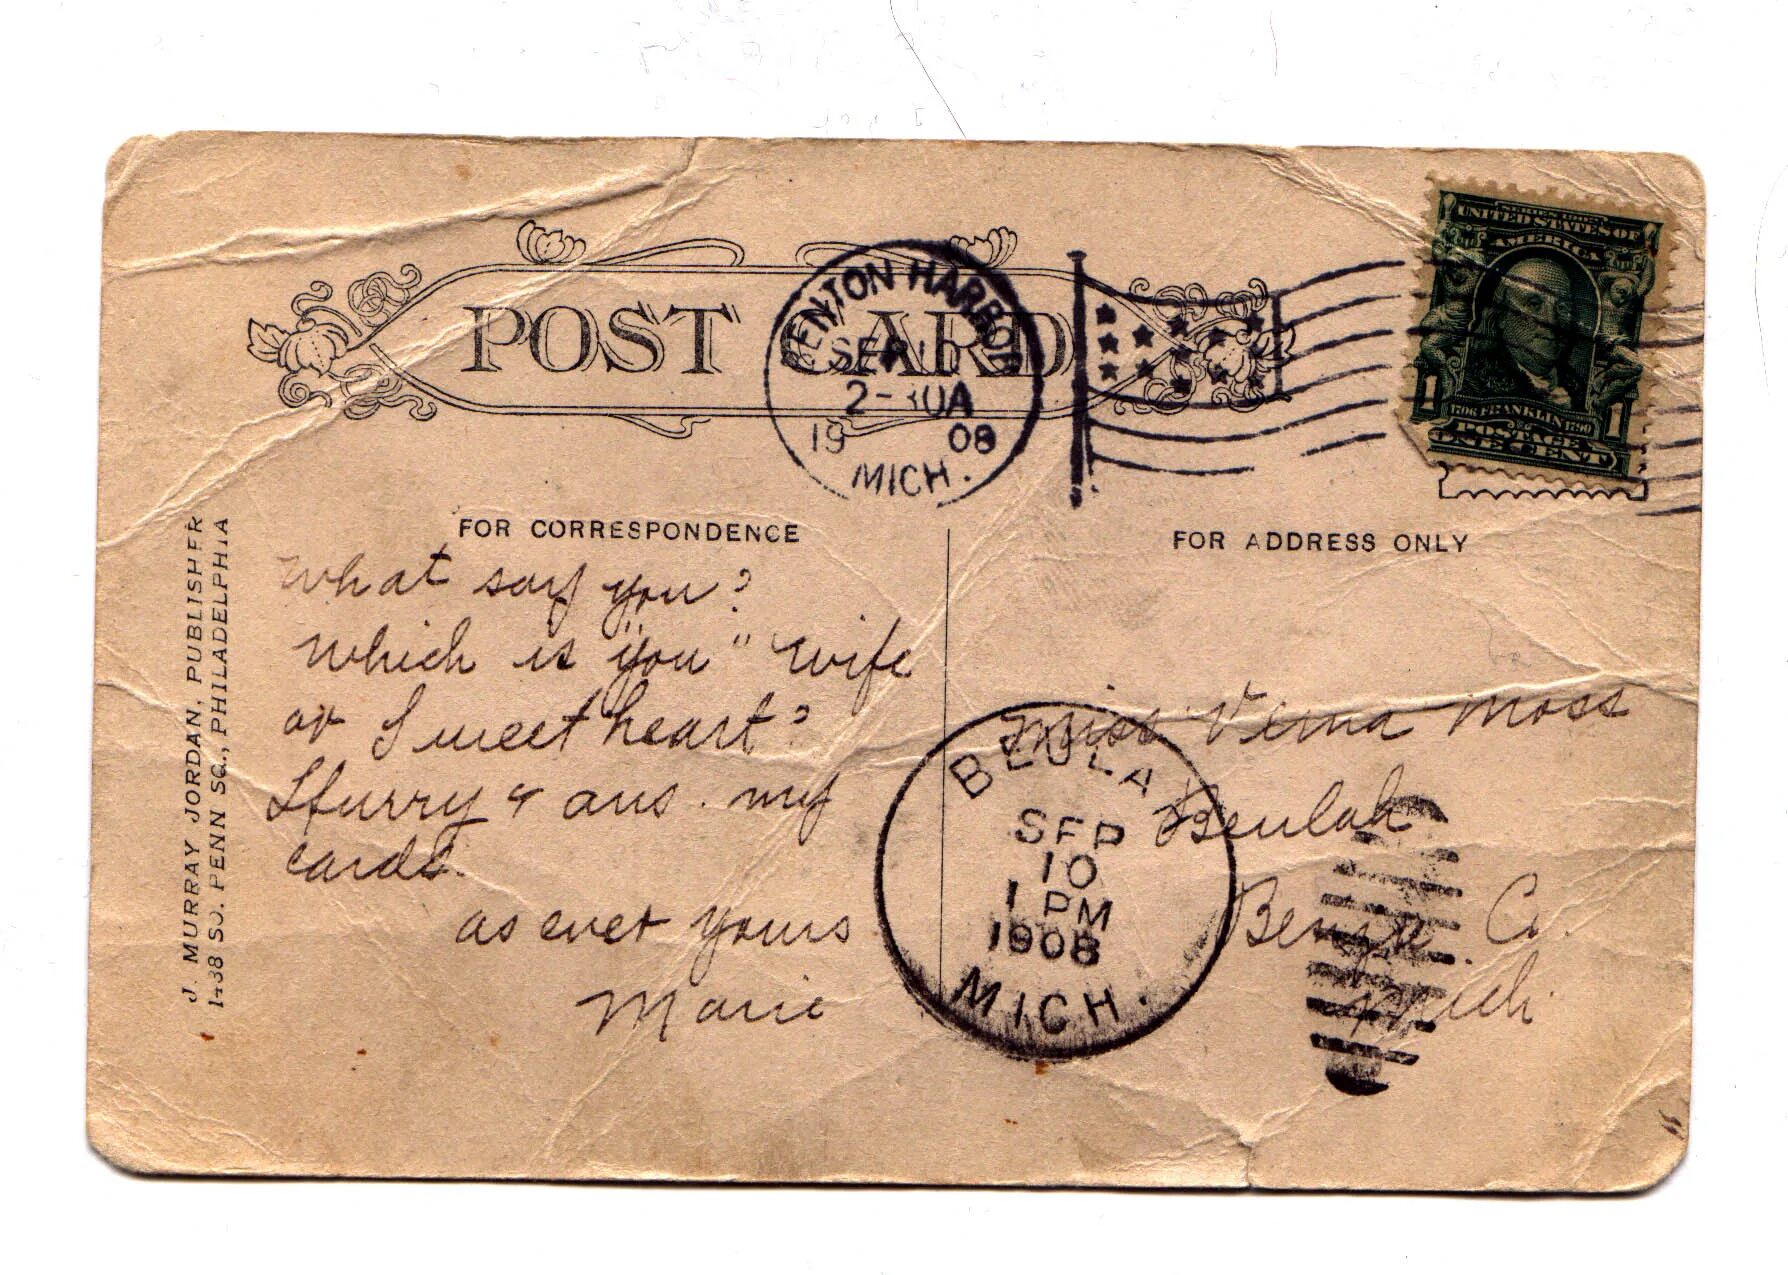 POST CARD
BENTON HARBOR
SEP 10
2-30A
19 08
MICH.
SERIES 1902
UNITED STATES OF
AMERICA
1706 FRANKLIN 1790
1 1
POSTAGE
ONE CENT
FOR CORRESPONDENCE
FOR ADDRESS ONLY
What say you?
Which is "you" wife
or Sweetheart?
Hurry & ans. my
cards.
as ever yours
Marie
Miss Verna Moss
Beulah
Benzie Co.
Mich.
BEULAH
SEP
10
1 PM
1908
MICH.
J. MURRAY JORDAN, PUBLISHER
SO. PENN SQ., PHILADELPHIA